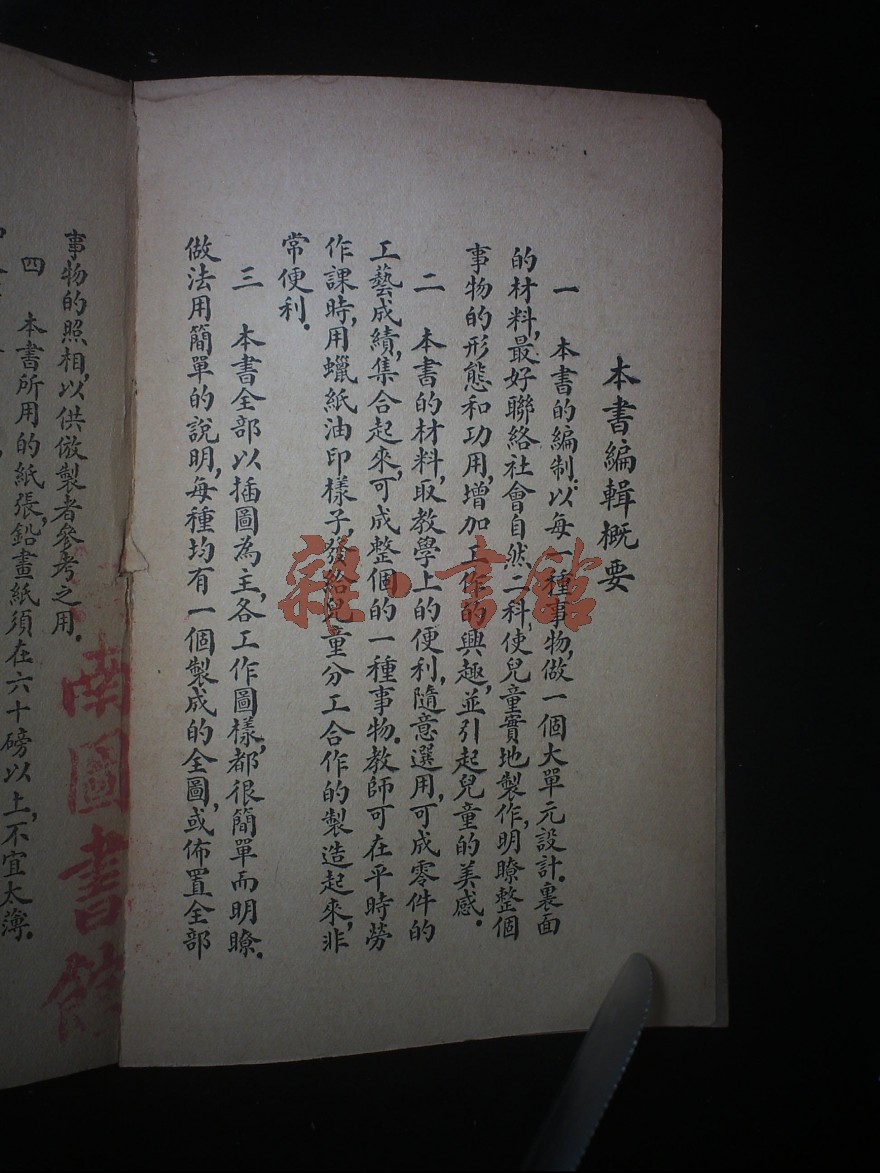 本書編輯概要
一　本書的編制：以每一種事物，做一個大單元設計。裏面
的材料，最好聯絡社會自然二科，使兒童實地製作，明瞭整個
事物的形態和功用，增加工作的興趣，並引起兒童的美感。
二　本書的材料，取教學上的便利，隨意選用，可成零件的
工藝成績，集合起來，可成整個的一種事物。教師可在平時勞
作課時，用蠟紙油印樣子，發給兒童分工合作的製造起來，非
常便利。
三　本書全部以插圖為主，各工作圖樣，都很簡單而明瞭。
做法用簡單的說明，每種均有一個製成的全圖，或佈置全部
事物的照相，以供倣製者參考之用。
四　本書所用的紙張，鉛畫紙須在六十磅以上，不宜太薄。
雜·書館
南圖書館